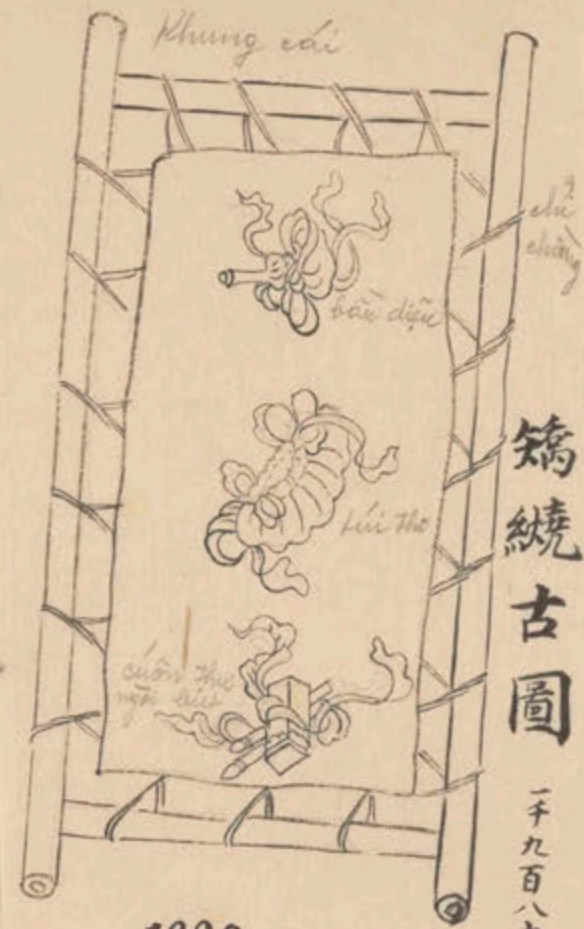 Khung cái
chỉ
chăng
bàn diện
túi thơ
cuốn thư
ngòi bút
矯繞古圖
一千九百八